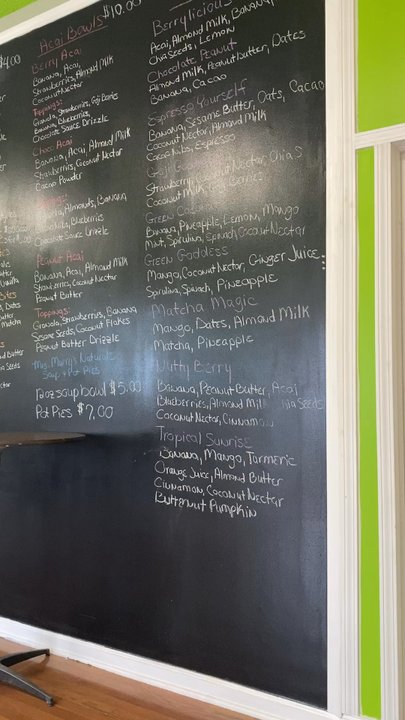 $4.00
Acai Bowls $10.00
Berry Acai
Banana, Acai,
Strawberries, Almond Milk
Coconut Nectar
Toppings:
Granola, Strawberries, Goji Berries
Banana, Blueberries,
Chocolate Sauce Drizzle
Choco Acai
Banana, Acai, Almond Milk
Strawberries, Coconut Nectar
Cacao Powder
Almonds, Banana
Blueberries
Chocolate Sauce Drizzle
Peanut Acai
Banana, Acai, Almond Milk
Strawberries, Coconut Nectar
Peanut Butter
Toppings:
Granola, Strawberries, Banana
Sesame Seeds, Coconut Flakes
Peanut Butter Drizzle
Soup + Pot Pies
12oz soup bowl $5.00
Pot Pies $7.00
Berrylicious
Acai, Almond Milk, Banana,
Chia Seeds, Lemon
Chocolate Peanut
Almond Milk, Peanut Butter, Dates
Banana, Cacao
Espresso Yourself
Banana, Sesame Butter, Oats, Cacao
Coconut Nectar, Almond Milk
Cacao Nibs, Espresso
Goji
Strawberry, Coconut Nectar, Chia S
Coconut Milk, Goji Berries
Green
Banana, Pineapple, Lemon, Mango
Mint, Spirulina, Spinach, Coconut Nectar
Green Goddess
Mango, Coconut Nectar, Ginger Juice
Spirulina, Spinach, Pineapple
Matcha Magic
Mango, Dates, Almond Milk
Matcha, Pineapple
Nutty Berry
Banana, Peanut Butter, Acai
Blueberries, Almond Milk, Chia Seeds
Coconut Nectar, Cinnamon
Tropical Sunrise
Banana, Mango, Turmeric
Orange Juice, Almond Butter
Cinnamon, Coconut Nectar
Butternut Pumpkin